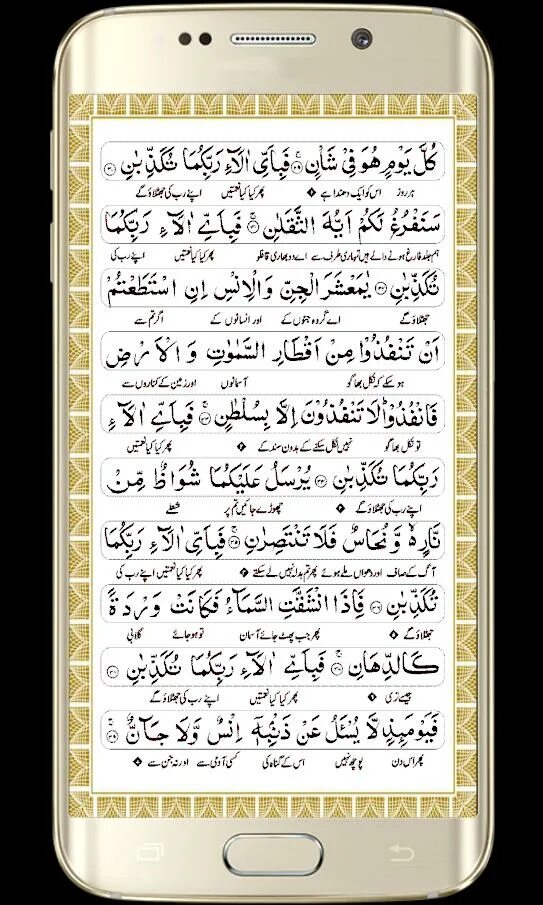 كُلَّ يَوْمٍ هُوَ فِيْ شَاْنٍ ۚ۝۲۹ فَبِاَيِّ اٰلَآءِ رَبِّكُمَا تُكَذِّبٰنِ ۝۳۰
ہر روز اس کو ایک دھندا ہے ۝ پھر کیا کیا نعمتیں اپنے رب کی جھٹلاؤ گے
سَنَفْرُغُ لَكُمْ اَيُّهَ الثَّقَلٰنِ ۚ۝۳۱ فَبِاَيِّ اٰلَآءِ رَبِّكُمَا
ہم جلد فارغ ہونے والے ہیں تمہاری طرف سے اے دو بھاری قافلو پھر کیا کیا نعمتیں اپنے رب کی
تُكَذِّبٰنِ ۝۳۲ يٰمَعْشَرَ الْجِنِّ وَالْاِنْسِ اِنِ اسْتَطَعْتُمْ
جھٹلاؤ گے اے گروہ جنوں کے اور انسانوں کے اگر تم سے
اَنْ تَنْفُذُوْا مِنْ اَقْطَارِ السَّمٰوٰتِ وَالْاَرْضِ
ہو سکے کہ نکل بھاگو آسمانوں اور زمین کے کناروں سے
فَانْفُذُوْا ؕ لَا تَنْفُذُوْنَ اِلَّا بِسُلْطٰنٍ ۚ۝۳۳ فَبِاَيِّ اٰلَآءِ
تو نکل بھاگو نہیں نکل سکنے کے بدون سند کے ۝ پھر کیا کیا نعمتیں
رَبِّكُمَا تُكَذِّبٰنِ ۝۳۴ يُرْسَلُ عَلَيْكُمَا شُوَاظٌ مِّنْ
اپنے رب کی جھٹلاؤ گے ۝ چھوڑے جائیں تم پر شعلے
نَّارٍ ۙ۬ وَّنُحَاسٌ فَلَا تَنْتَصِرٰنِ ۚ۝۳۵ فَبِاَيِّ اٰلَآءِ رَبِّكُمَا
آگ کے صاف اور دھواں ملے ہوئے پھر تم بدلہ نہیں لے سکتے ۝ پھر کیا کیا نعمتیں اپنے رب کی
تُكَذِّبٰنِ ۝۳۶ فَاِذَا انْشَقَّتِ السَّمَآءُ فَكَانَتْ وَرْدَةً
جھٹلاؤ گے ۝ پھر جب پھٹ جائے آسمان تو ہو جائے گلابی
كَالدِّهَانِ ۚ۝۳۷ فَبِاَيِّ اٰلَآءِ رَبِّكُمَا تُكَذِّبٰنِ ۝۳۸
جیسے نری ۝ پھر کیا کیا نعمتیں اپنے رب کی جھٹلاؤ گے
فَيَوْمَىِٕذٍ لَّا يُسْـَٔلُ عَنْ ذَنْۢبِهٖۤ اِنْسٌ وَّلَا جَآنٌّ ۚ۝۳۹
پھر اس دن پوچھ نہیں اس کے گناہ کی کسی آدمی سے اور نہ جن سے ۝